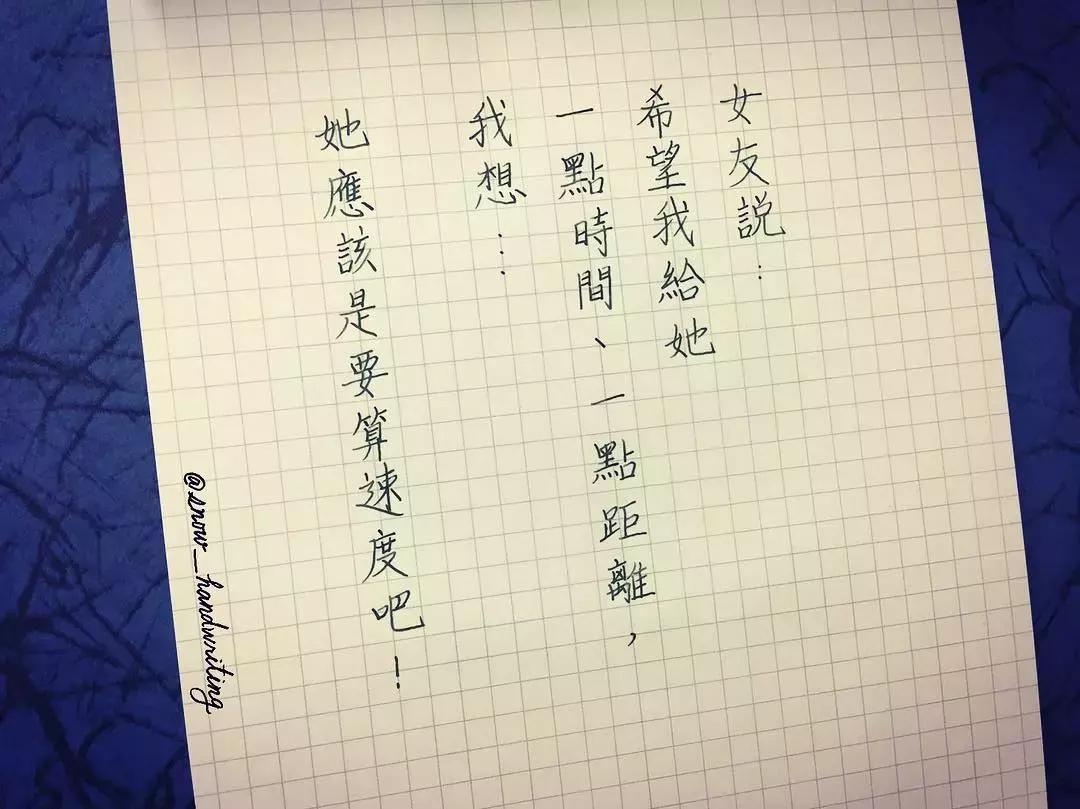 女友説：
希望我給她
一點時間、一點距離，
我想……
她應該是要算速度吧！
@snow__handwriting